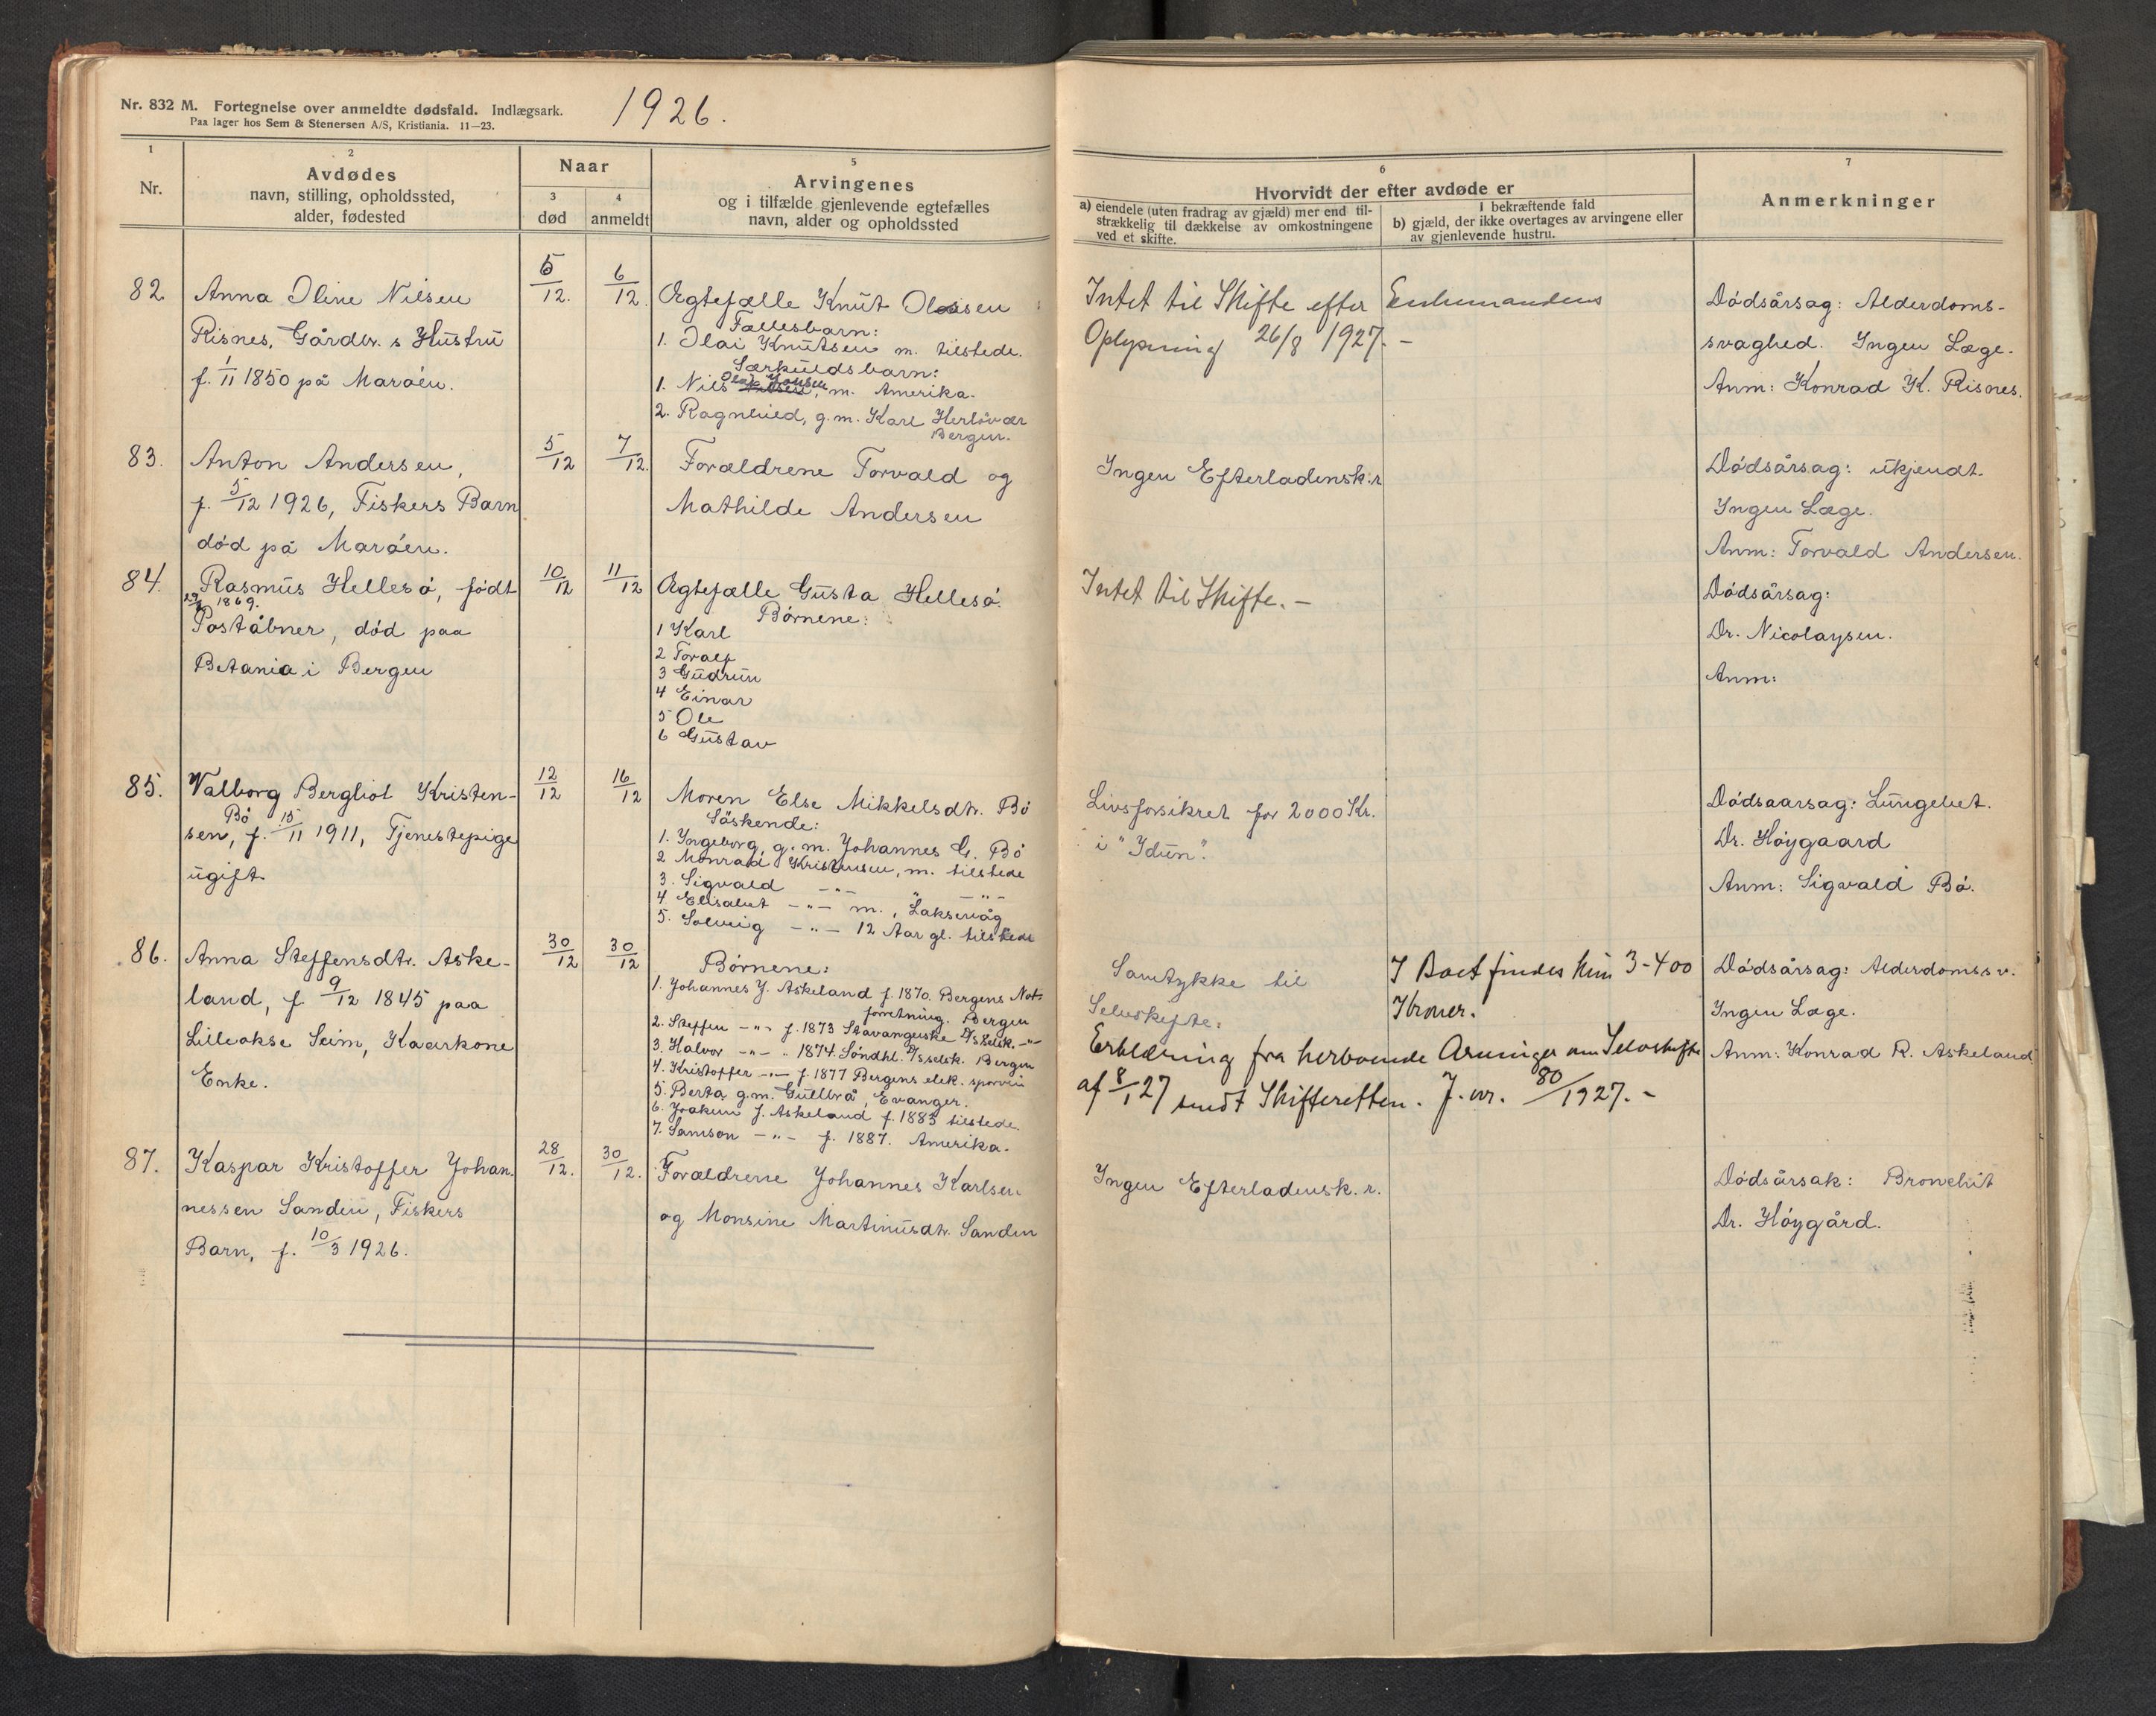 Nr. 832 M. Fortegnelse over anmeldte dødsfald. Indlægsark.
Paa lager hos Sem & Stenersen A/S, Kristiania. 11—23.
1926.
1
Nr.
2
Avdødes
navn, stilling, opholdssted,
alder, fødested
Naar
3
død
4
anmeldt
5
Arvingenes
og i tilfælde gjenlevende egtefælles
navn, alder og opholdssted
6
Hvorvidt der efter avdøde er
a) eiendele (uten fradrag av gjæld) mer end til-
strækkelig til dækkelse av omkostningene
ved et skifte.
I bekræftende fald
b) gjæld, der ikke overtages av arvingene eller
av gjenlevende hustru.
7
Anmerkninger
82.
Anna Oline Nilsen
Risnes, Gårdbr. s Hustru
f. 1/11 1850 på Maröen.
5/12.
6/12.
Ægtefælle Knut Olsen
Fællesbarn:
1. Olai Knutsen m. tilstede.
Særkuldsbarn:
1. Nils Olai Jonsen, m. Amerika.
2. Ragnhild, g.m. Karl Herlövær
Bergen.
Intet til Skifte efter Enkemandens
Oplysning 26/8 1927. –
Dödsårsag: Alderdoms-
svaghed. Ingen Læge.
Anm: Konrad K. Risnes.
83.
Anton Andersen,
f. 5/12 1926, Fiskers Barn
död på Maröen.
5/12
7/12.
Forældrene Torvald og
Mathilde Andersen
Ingen Efterladensk:r
Dödsårsag: ukjendt.
Ingen Læge.
Anm: Torvald Andersen.
84.
Rasmus Hellesö, födt
1869.
Poståbner, död paa
Betania i Bergen
10/12
11/12
Ægtefælle Gusta Hellesö.
Börnene:
1 Karl
2 Toralf
3 Gudrun
4 Einar
5 Ole
6 Gustav
Intet til Skifte. –
Dödsårsag:
Dr. Nicolaysen.
Anm:
85.
Valborg Bergliot Kristen-
sen, Bö f. 15/11 1911, Tjenestepige
ugift.
12/12
16/12
Moren Else Mikkelsdtr. Bö
Söskende:
1. Ingeborg, g.m. Johannes G. Bö
2 Monrad Kristensen, m. tilstede
3. Sigvald -"- " -"-
4 Elisabet -"- m., Laksevåg
5. Solveig -"- 12 Aar gl. tilstede
Livsforsikret for 2000 Kr.
i "Idun".
Dödsaarsag: Lungebet.
Dr. Höygaard
Anm: Sigvald Bö.
86.
Anna Steffensdtr. Aske-
land, f. 9/12 1845 paa
Lilleokse Seim, Kaarkone
Enke.
30/12
30/12
Börnene:
1. Johannes J. Askeland f. 1870. Bergens Not-
forretning. Bergen
2. Steffen -"- f. 1873 Stavangerske D/S selsk. -"-
3. Halvor -"- " 1874. Söndhl. D/S selsk. Bergen
4. Kristoffer -"- f. 1877 Bergens elek. sporvei
5. Berta g.m. Gullbrå, Evanger.
6. Joakim J. Askeland f. 1883 tilstede.
7. Samson -"- f. 1887. Amerika.
Samtykke til
Selvskifte.
I Boet findes kun 3-400
Kroner.
Erklæring fra herboende Arvinger om Selvskifte
af 8/1 27 sendt Skifteretten. J. nr. 80/1927. –
Dödsårsag: Alderdomssv.
Ingen Læge.
Anm: Konrad R. Askeland
87.
Kaspar Kristoffer Johan-
nessen Sanden, Fiskers
Barn, f. 10/3 1926.
28/12.
30/12.
Forældrene Johannes Karlsen
og Monsine Martinusdtr. Sanden
Ingen Efterladensk.r.
Dödsårsak: Bronchit
Dr. Höygård.